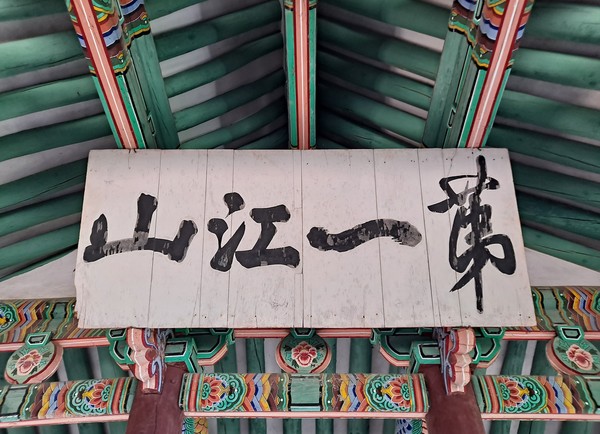 第一江山